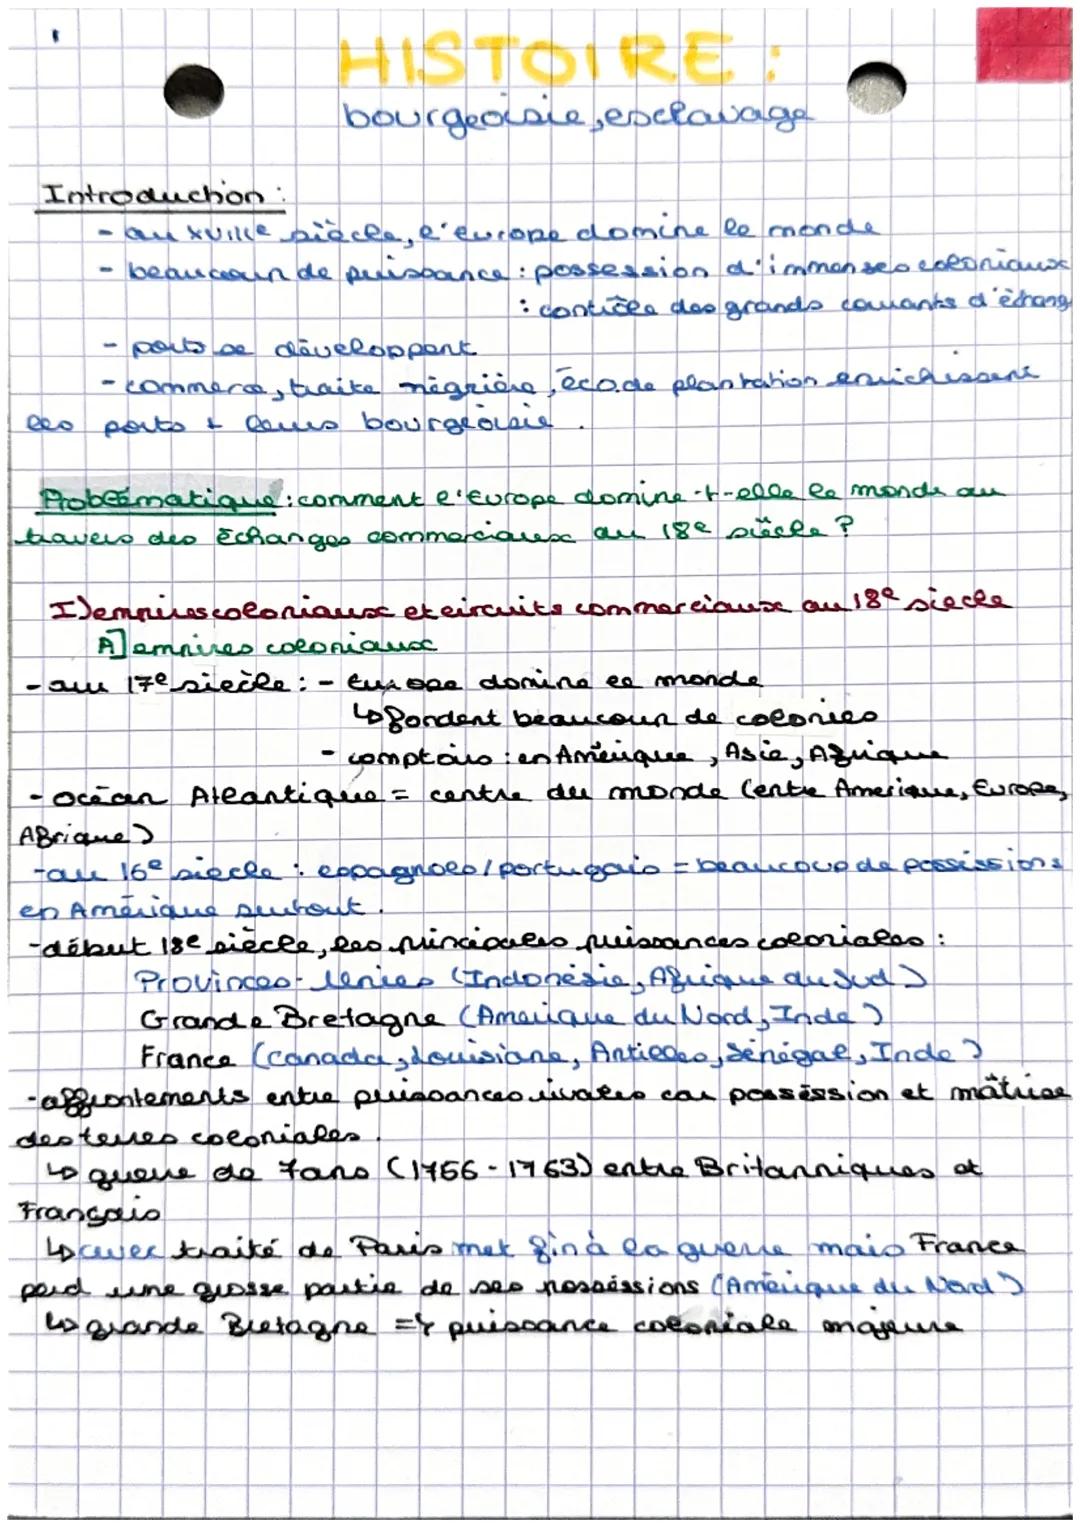 HISTOIRE :
bourgeoisie, esclavage
Introduction :
- au XVIIIe siècle, l'europe domine le monde
- beaucoup de puissance : possession d'immenses coloniaux
: contrôle des grands courants d'échang
- ports se développent
- commerce, traite négrière, éco. de plantation enrichissent
les ports + leurs bourgeoisie.
Problématique : comment l'Europe domine-t-elle le monde au
travers des échanges commerciaux au 18e siècle ?
I) empires coloniaux et circuits commerciaux au 18e siecle
A] empires coloniaux
- au 17e siecle : - Europe domine le monde
↳ fondent beaucoup de colonies
- comptoirs : en Amérique, Asie, Afrique
- océan Atlantique = centre du monde (entre Amerique, Europe,
Afrique)
- au 16e siecle : espagnols / portugais = beaucoup de possissions
en Amérique surtout.
- début 18e siècle, les principales puissances coloniales :
Provinces-Unies (Indonésie, Afrique du Sud)
Grande Bretagne (Amerique du Nord, Inde)
France (canada, Louisiane, Antilles, Sénégal, Inde)
- affrontements entre puissances rivales car possession et maîtrise
des terres coloniales.
↳ guerre de 7 ans (1756-1763) entre Britanniques et
Français
↳ avec traité de Paris met fin à la guerre mais France
perd une grosse partie de ses possessions (Amérique du Nord)
↳ grande Bretagne => puissance coloniale majeure